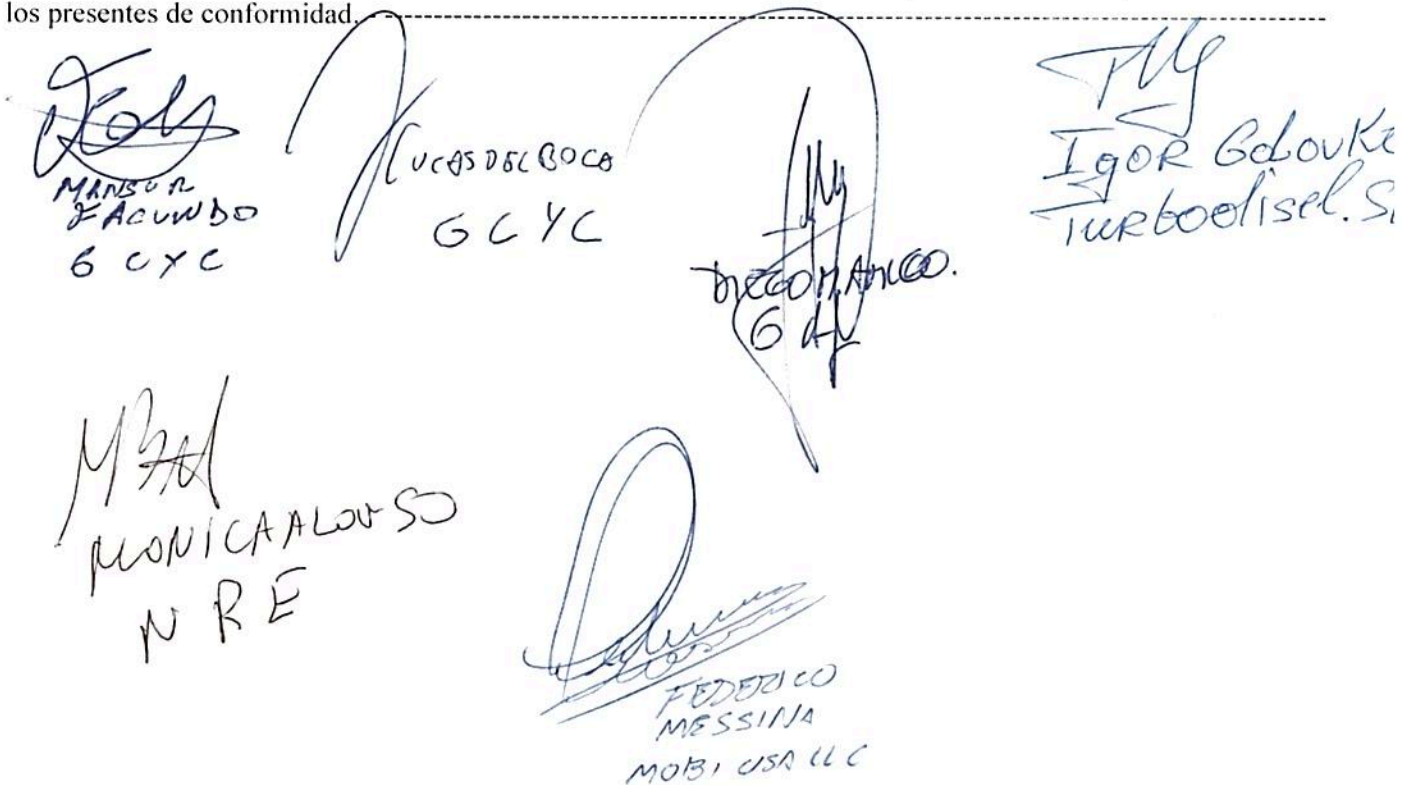 los presentes de conformidad.
MANSUR
FACUNDO
GCYC
LUCAS DEL BOCA
GCYC
DIEGO M. AMICO.
G
Igor Golovk
Turbodisel. S
MONICA ALONSO
NRE
FEDERICO
MESSINA
MOBI USA LLC